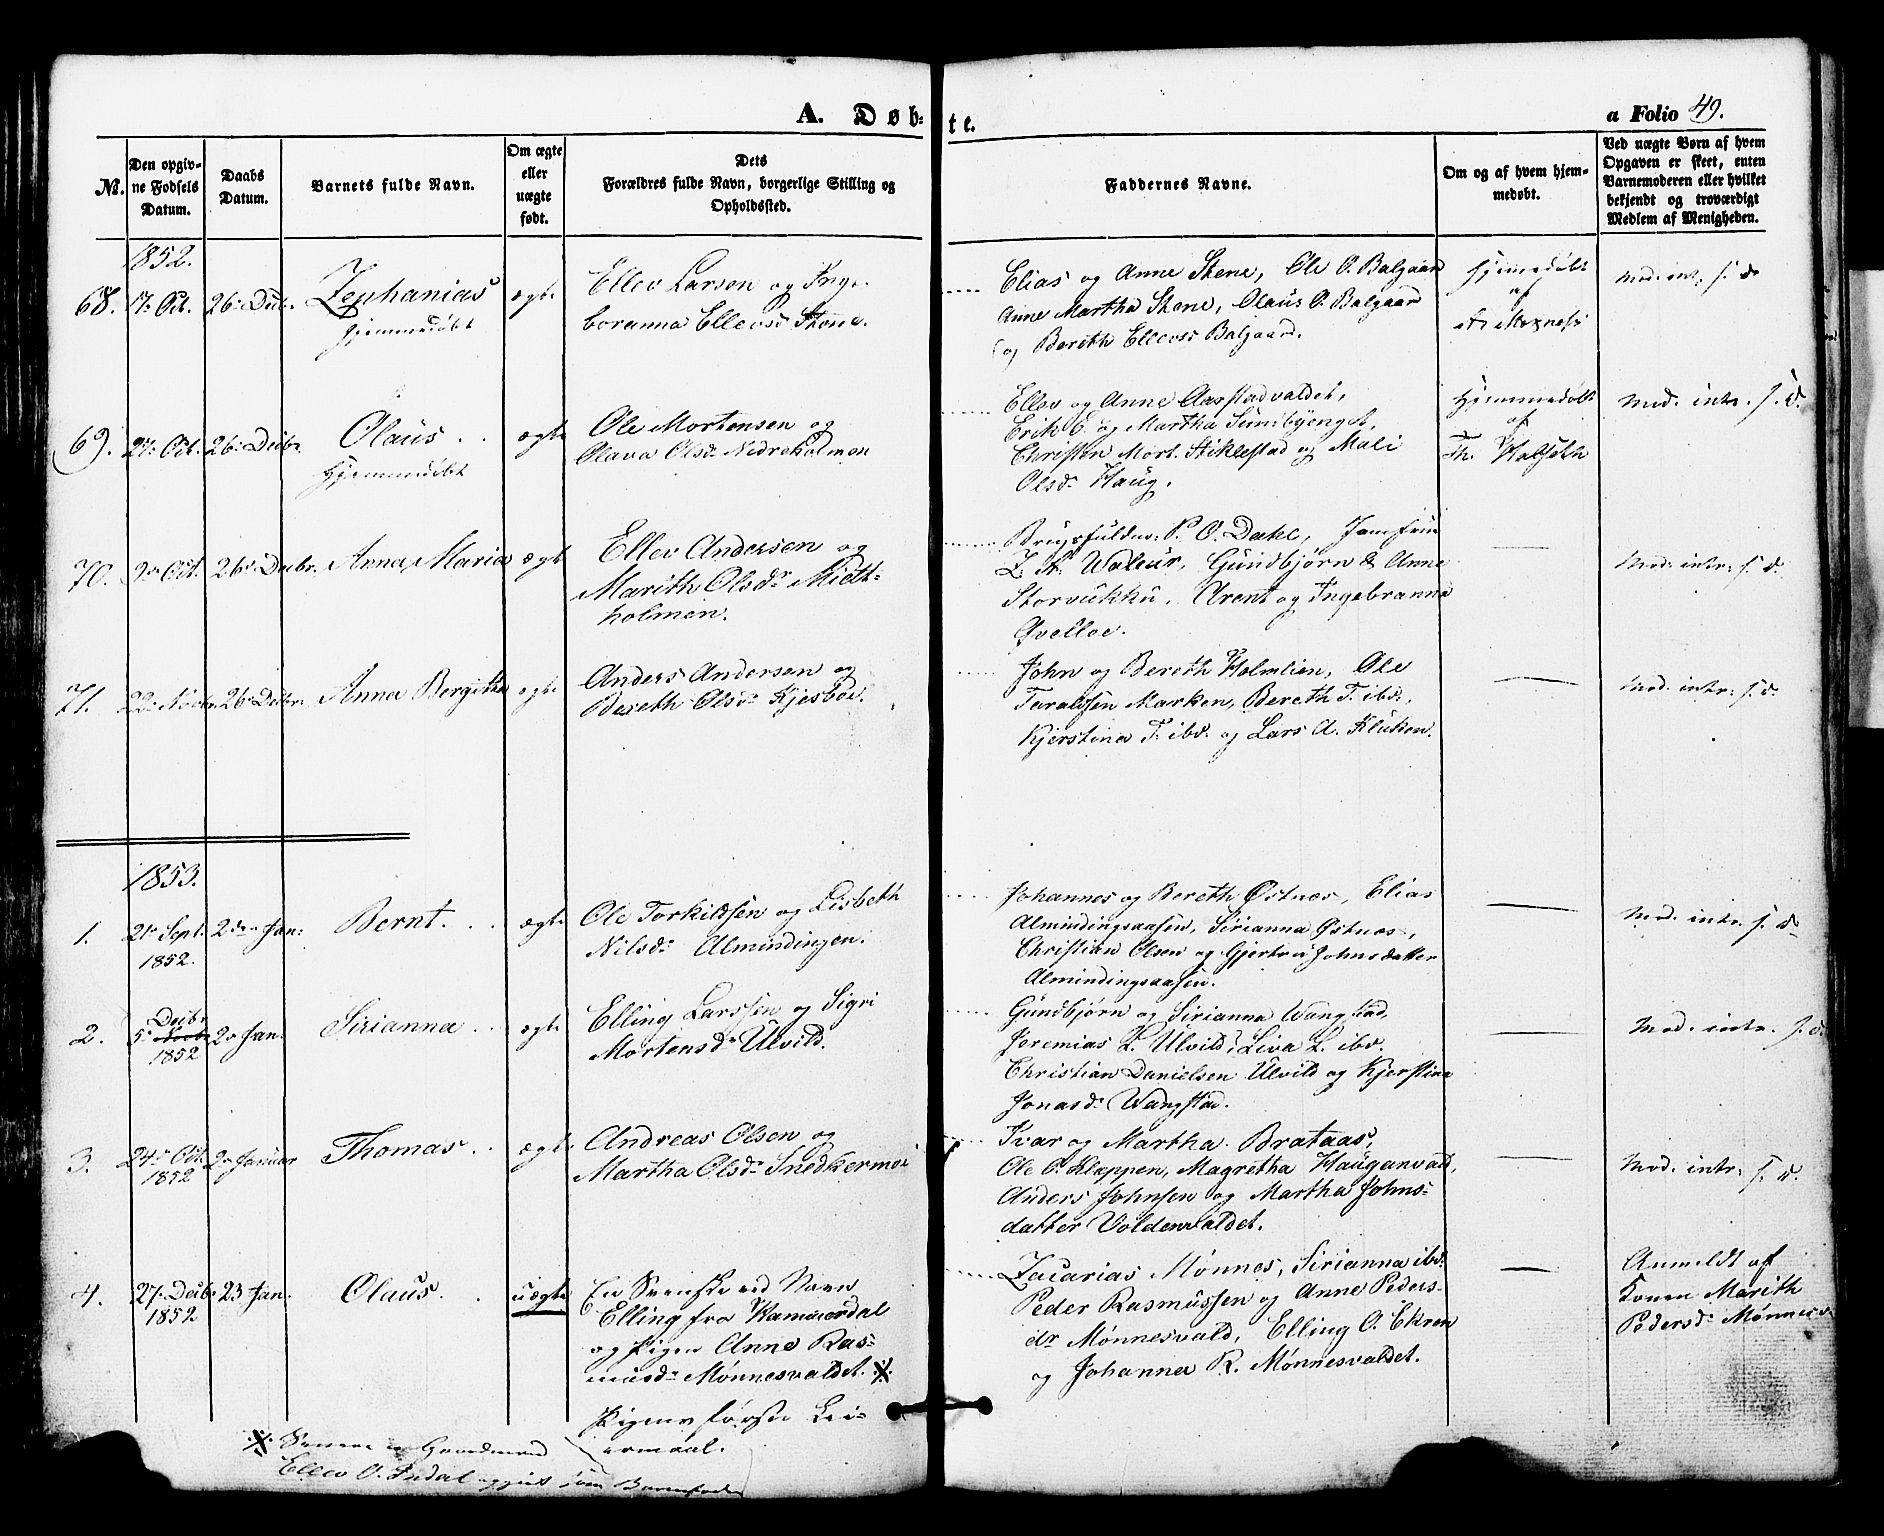 A. Døb-
te.
a Folio 49.
No.
Den opgiv-
ne Fødsels
Datum.
Daabs
Datum.
Barnets fulde Navn.
Om ægte
eller
uægte
født.
Dets
Forældres fulde Navn, borgerlige Stilling og
Opholdssted.
Faddernes Navne.
Om og af hvem hjem-
medøbt.
Ved uægte Børn af hvem
Opgaven er skeet, enten
Barnemoderen eller hvilket
bekjendt og troværdigt
Medlem af Menigheden.
1852.
68.
17. Oct.
26. Decbr.
Zephanias
hjemmedøbt
ægte
Ellev Larsen og Inge-
boranna Ellevsd. Stene.
Elias og Anne Stene, Ole O. Balgaard
Anne Martha Stene, Olaus O. Balgaard
og Bereth Ellevsd Balgaard.
Hjemmedøbt
af
Mod. intr. s. d.
69.
27. Oct.
26. Decbr.
Olaus
Hjemmedøbt
ægte
Ole Mortensen og
Olava Olsdr. Nedreholmen
Ellev og Anne Aasstadvaldet,
Erik E. og Martha Semibyenget,
Christen Mort. Stiklestad og Mali
Olsdr. Haug.
Hjemmedøbt
af
Th. Halseth
Mod. intr. s. d.
70.
9. Oct.
26. Decbr.
Anna Maria
ægte
Ellev Andersen og
Marith Olsdr. Midt-
holmen.
Brugsfuldm. P. O. Dahl, Jomfru
Gundbjørn & Anne
Storvukku, Arent og Ingebranna
Qvelloe.
Mod. intr. s. d.
71.
22. Novbr.
26. Decbr.
Anna Bergitha
ægte
Anders Andersen og
Bereth Olsdr. Kjesboe.
John og Bereth Holmlien, Ole
Taraldsen Marken, Bereth T. ibd.,
Kjerstina T. ibd. og Lars A. Kluken.
Mod. intr. s. d.
1853.
1.
21. Sept.
1852.
2den Jan:
Bernt.
ægte
Ole Torkildsen og Lisbeth
Nilsdr. Almindingen.
Johannes og Bereth Østnes, Elias
Almindingsaasen, Sirianna Østnes,
Christian Olsen og Gjertru Johnsdatter
Almindingsaasen.
Mod. intr. s. d.
2.
5. Novbr. Decbr
1852
2. Jan.
Sirianna
ægte
Elling Larssen og Sigri
Mortensdr. Ulvild.
Gundbjørn og Sirianna Wangstad,
Jeremias L. Ulvild, Liva L. ibd.
Christian Danielsen Ulvild og Kjerstina
Jonasdr. Wangstad.
Mod. intr. s. d.
3.
24. Oct.
1852
2. Januar
Thomas
ægte
Andreas Olsen og
Martha Olsdr. Snedkermoe
Ivar og Martha Brataas,
Ole O. Kleppen, Magretha Hauganvald,
Anders Johnsen og Martha Johns-
datter Voldenvaldet.
Mod. intr. s. d.
4.
27. Decbr
1852
23 Jan.
Olaus
uægte
En Svenske ved Navn
Elling fra Hammerdal
og Pigen Anne Ras-
musdr. Mønnesvaldet. ※
Pigens første Lei-
ermaal.
Zacarias Mønnes, Sirianna ibd.
Peder Rasmussen og Anne Peders-
dr. Mønnesvald, Elling O. Ekren
og Johanna R. Mønnesvaldet.
Anmeldt af
Konen Marith
Pedersdr. Mønnesvd
※ Senere er Gaardmand
Ellev O. Indal opgivet som Barnefader